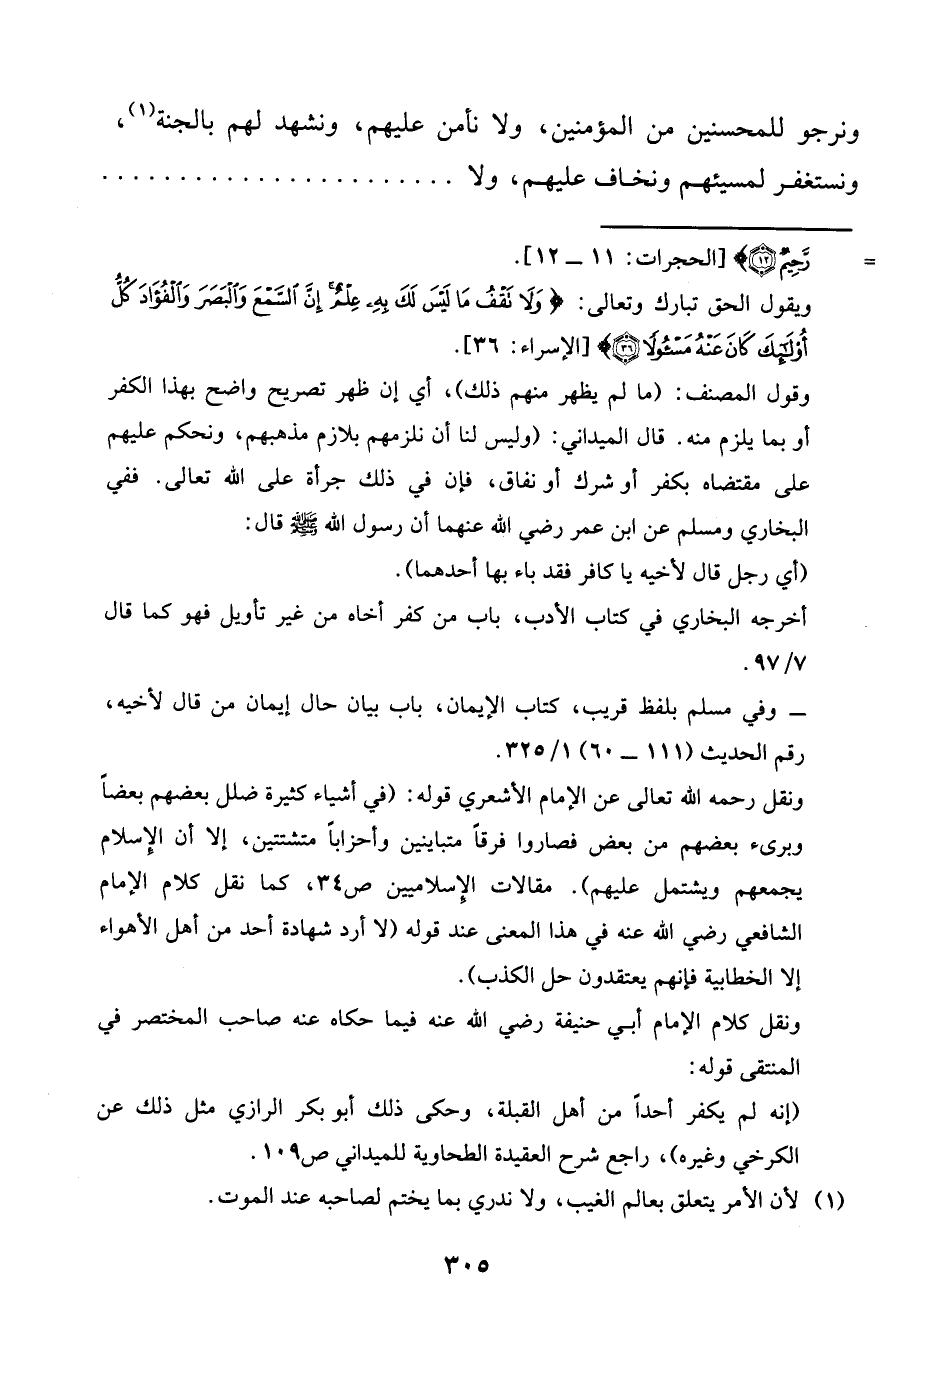 ونرجو للمحسنين من المؤمنين، ولا نأمن عليهم، ونشهد لهم بالجنة(١)،
ونستغفر لمسيئهم ونخاف عليهم، ولا . . . . . . . . . . . . . . . . . . . . . . .
= رَّحِيمٌ ﴿١٢﴾﴾ [الحجرات: ١١ ــ ١٢].
ويقول الحق تبارك وتعالى: ﴿ وَلَا نَقْفُ مَا لَيْسَ لَكَ بِهِۦ عِلْمٌ إِنَّ ٱلسَّمْعَ وَٱلْبَصَرَ وَٱلْفُؤَادَ كُلُّ
أُوْلَٰٓئِكَ كَانَ عَنْهُ مَسْـُٔولًا ﴿٣٦﴾﴾ [الإسراء: ٣٦].
وقول المصنف: (ما لم يظهر منهم ذلك)، أي إن ظهر تصريح واضح بهذا الكفر
أو بما يلزم منه. قال الميداني: (وليس لنا أن نلزمهم بلازم مذهبهم، ونحكم عليهم
على مقتضاه بكفر أو شرك أو نفاق، فإن في ذلك جرأة على الله تعالى. ففي
البخاري ومسلم عن ابن عمر رضي الله عنهما أن رسول الله ﷺ قال:
(أي رجل قال لأخيه يا كافر فقد باء بها أحدهما).
أخرجه البخاري في كتاب الأدب، باب من كفر أخاه من غير تأويل فهو كما قال
٩٧/٧.
ــ وفي مسلم بلفظ قريب، كتاب الإيمان، باب بيان حال إيمان من قال لأخيه،
رقم الحديث (١١١ ــ ٦٠) ٣٢٥/١.
ونقل رحمه الله تعالى عن الإمام الأشعري قوله: (في أشياء كثيرة ضلل بعضهم بعضاً
وبرىء بعضهم من بعض فصاروا فرقاً متباينين وأحزاباً متشتتين، إلا أن الإسلام
يجمعهم ويشتمل عليهم). مقالات الإسلاميين ص٣٤، كما نقل كلام الإمام
الشافعي رضي الله عنه في هذا المعنى عند قوله (لا أرد شهادة أحد من أهل الأهواء
إلا الخطابية فإنهم يعتقدون حل الكذب).
ونقل كلام الإمام أبي حنيفة رضي الله عنه فيما حكاه عنه صاحب المختصر في
المنتقى قوله:
(إنه لم يكفر أحداً من أهل القبلة، وحكى ذلك أبو بكر الرازي مثل ذلك عن
الكرخي وغيره)، راجع شرح العقيدة الطحاوية للميداني ص١٠٩.
(١) لأن الأمر يتعلق بعالم الغيب، ولا ندري بما يختم لصاحبه عند الموت.
٣٠٥